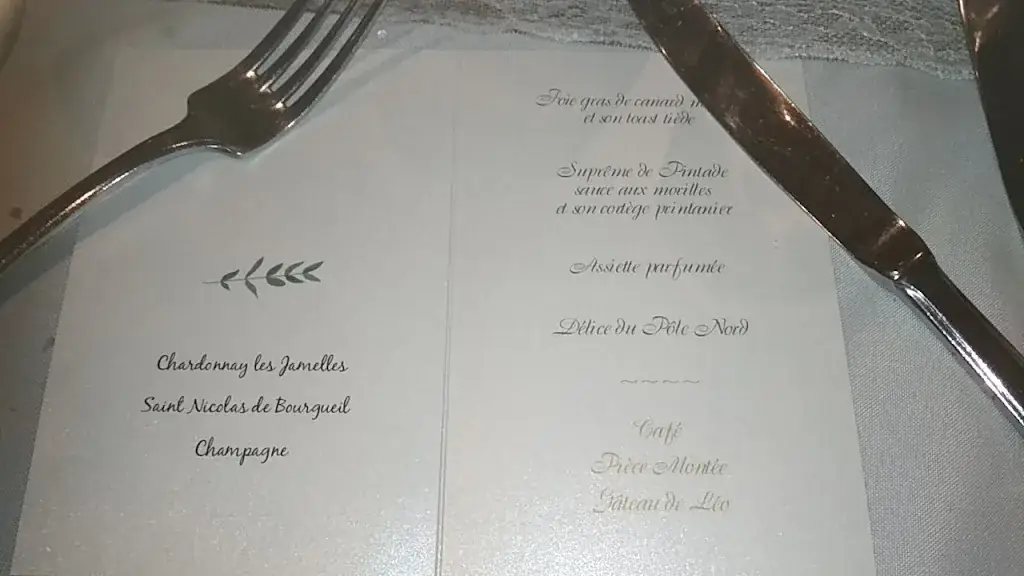 Chardonnay les Jamelles
Saint Nicolas de Bourgueil
Champagne
Foie gras de canard
et son toast tiède
Suprême de Pintade
sauce aux morilles
et son cortège printanier
Assiette parfumée
Délice du Pôle Nord
~~~~
Café
Pièce Montée
Gâteau de Léo